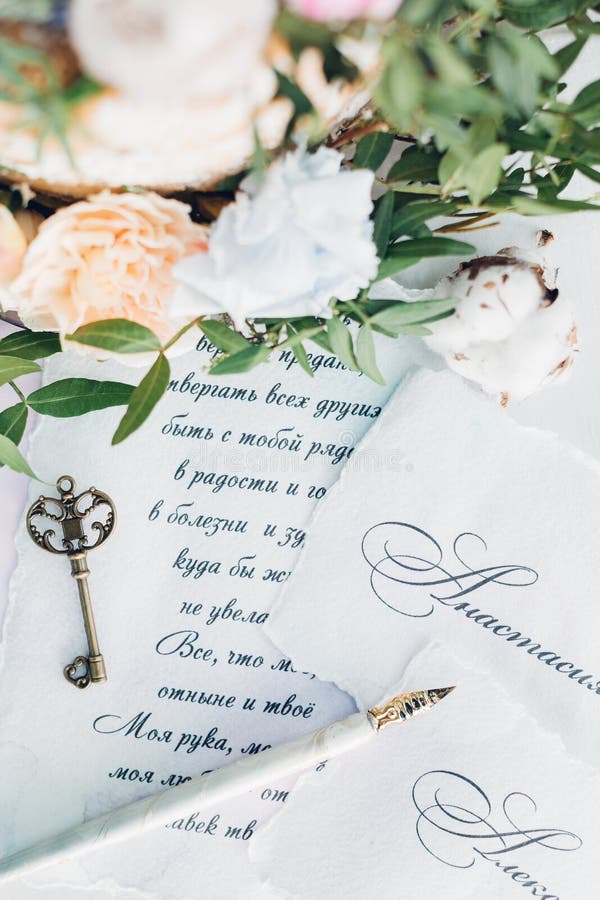 твергать всех других
быть с тобой ряд
в радости и го
в болезни и зд
куда бы ж
не увела
Все, что мо
отныне и твоё
Моя рука, мо
моя лю
от
авек тв
Анастасия
Алекс
dreamstime